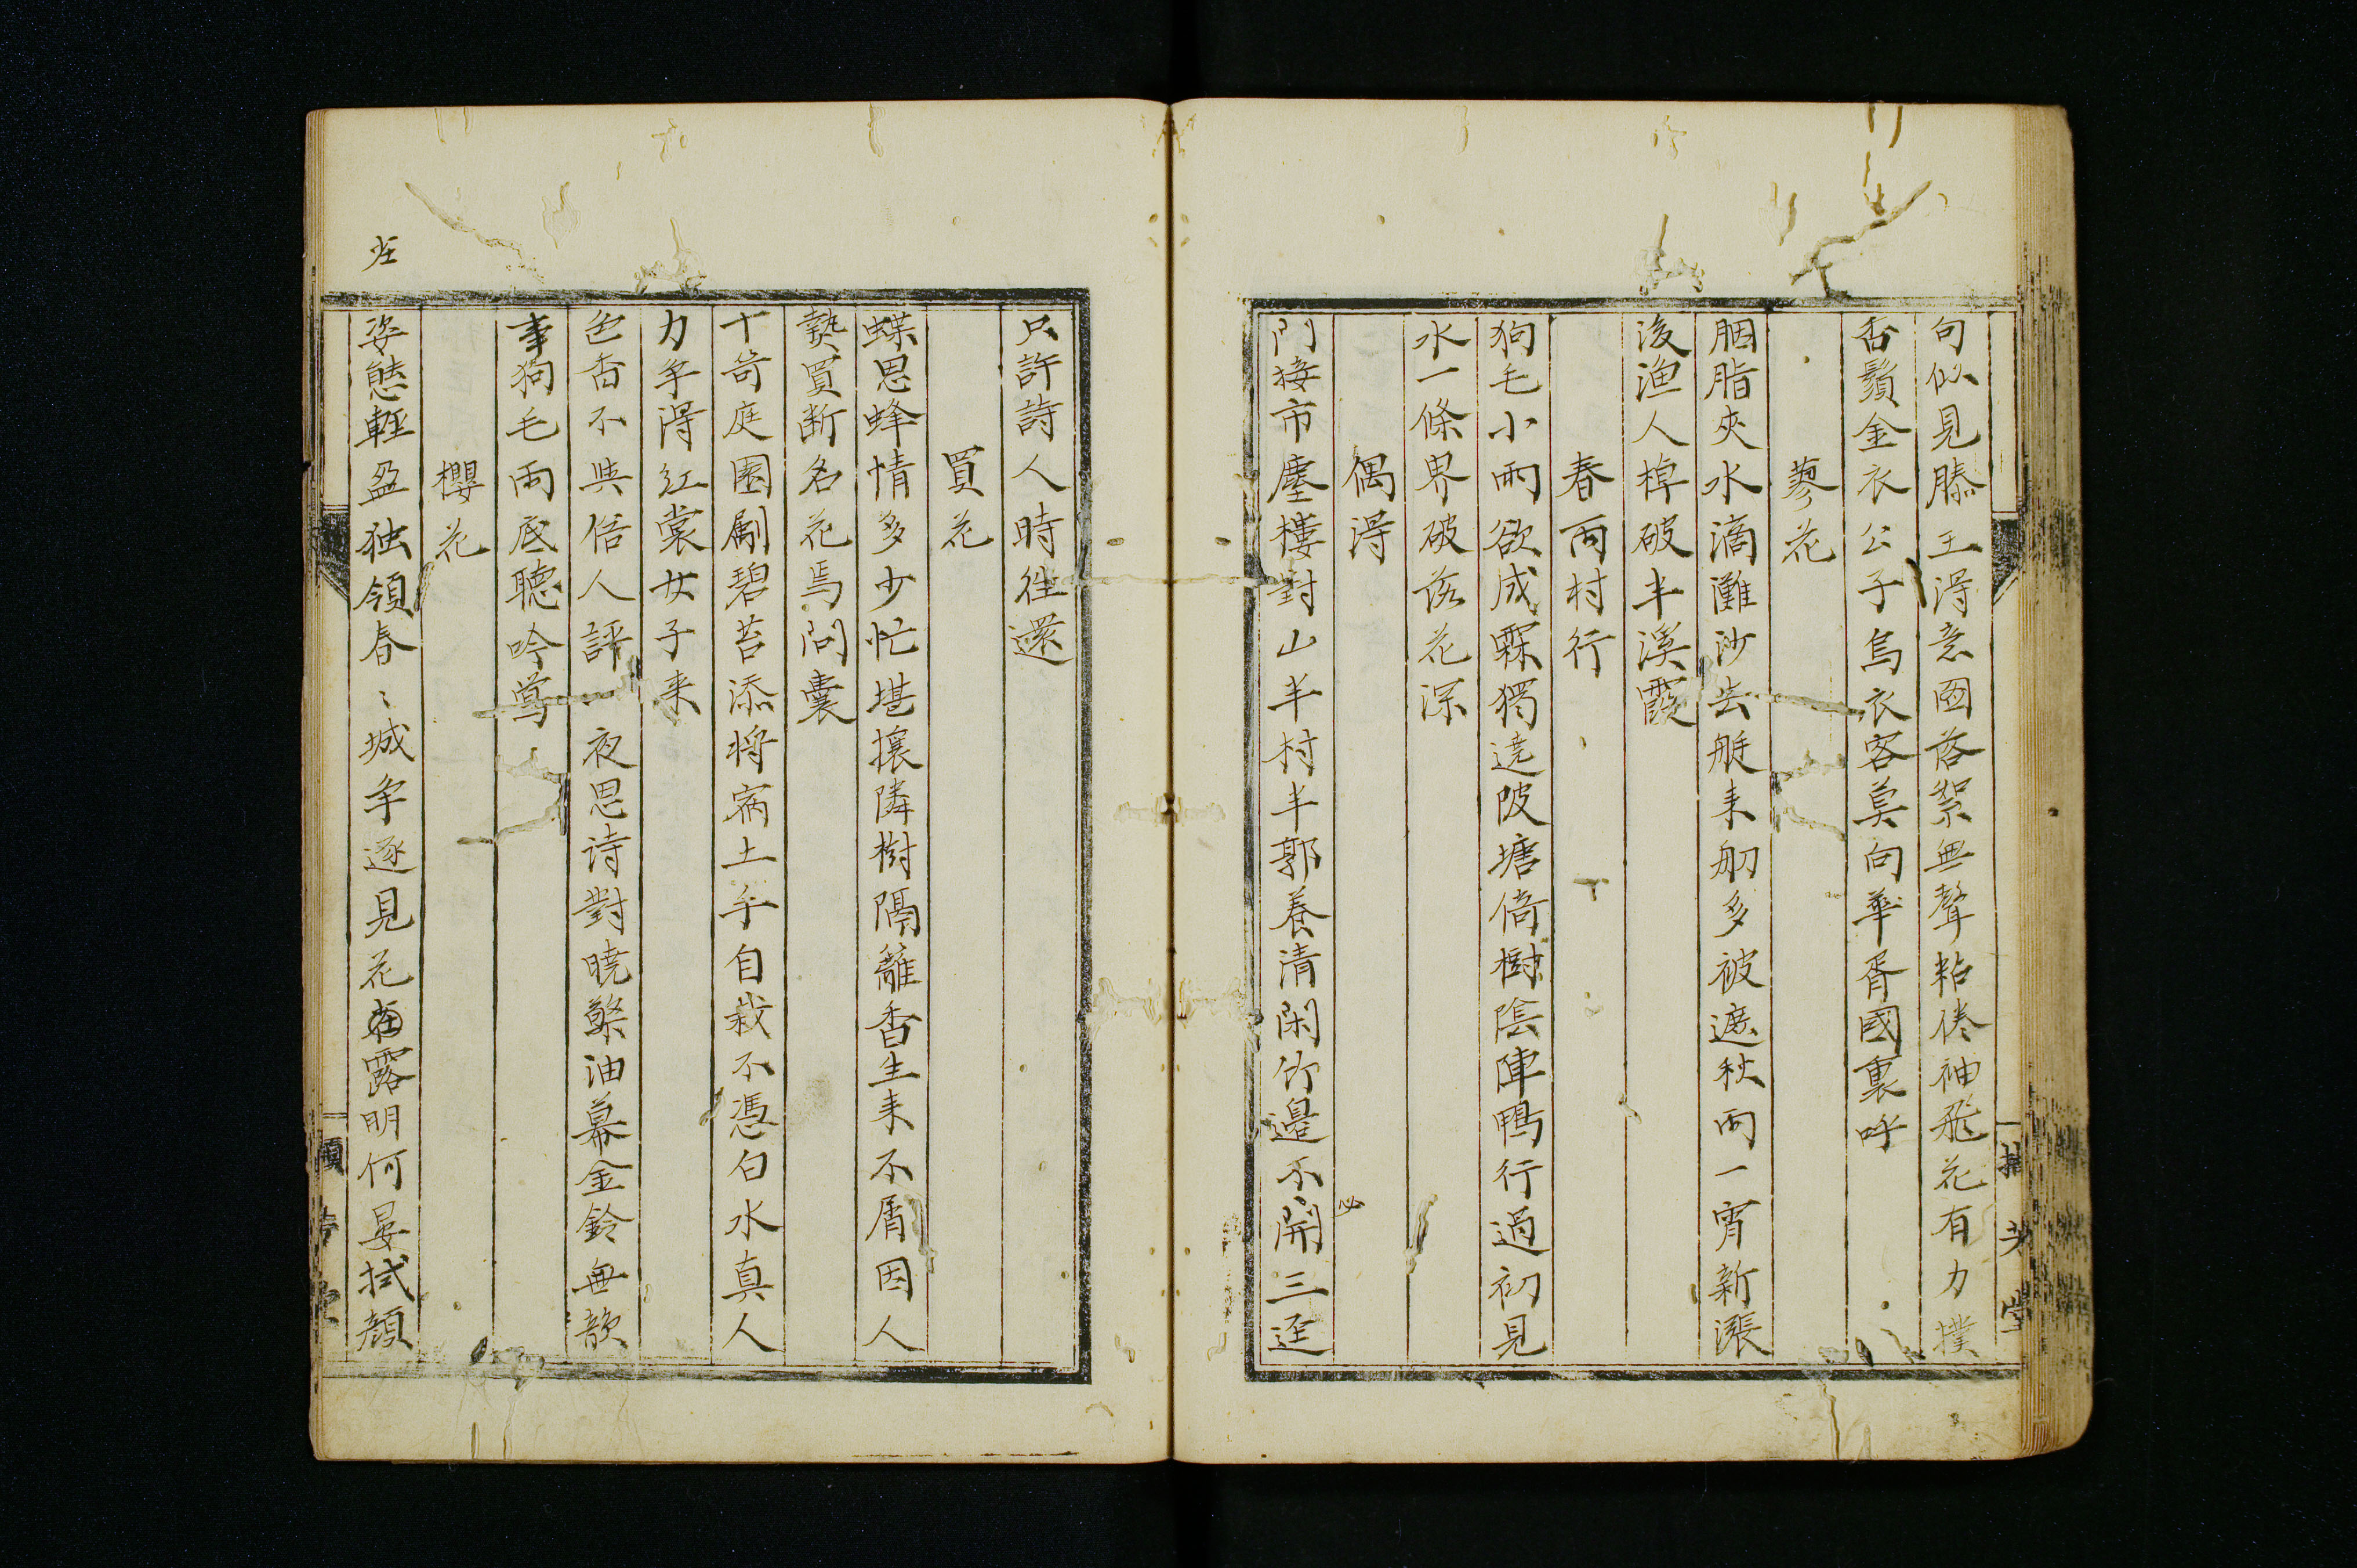 句似見滕王得意圖落絮無聲粘倦袖飛花有力撲
香鬚金衣公子烏衣客莫向華胥國裏呼
蓼花
胭脂夾水滴灘沙去艇来舠多被遮秋雨一宵新漲
後漁人棹破半溪霞
春雨村行
狗毛小雨欲成霖獨遶陂塘倚樹陰陣鴨行過初見
水一條界破落花深
偶得
門接市塵樓對山半村半郭養清閑竹邉不開三逕
必
只許詩人時往還
買花
蝶思蜂情多少忙堪攘隣樹隔籬香生来不屑因人
熱買断名花焉問囊
十笏庭園劚碧苔添将病土手自栽不憑白水真人
力争得紅裳女子来
色香不與俗人評一夜思诗對曉檠油幕金鈴無韻
事狗毛雨底聴吟鶯
櫻花
姿態輕盈独領春〻城争逐見花露明何晏拭顔